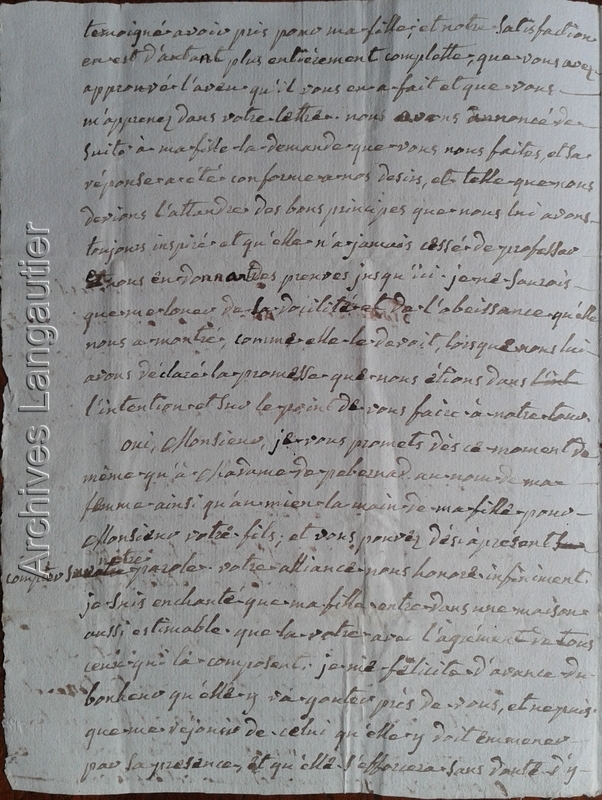 temoigné avoir pris pour ma fille; et notre satisfaction
en est d'autant plus entièrement complette, que vous avez
approuvé l'aveu qu'il vous en a fait et que vous
m'apprenez dans votre lettre. nous avons annoncé de
suite à ma fille la demande que vous nous faites, et sa
réponse a été conforme a nos desirs, et telle que nous
devions l'attendre des bons principes que nous lui avons
toujours inspiré et qu'elle n'a jamais cessé de professer
et nous en donnant des preuves jusqu'ici. je ne saurois
que me louer de la docilité et de l'obeissance qu'elle
nous a montré, comme elle le devoit, lorsque nous lui
avons déclaré la promesse que nous étions dans
l'intention et sur le point de vous faire à notre tour.
oui, Monsieur, je vous promets dès ce moment de
même qu'à Madame de pebernad au nom de ma
femme ainsi qu'au mien la main de ma fille pour
Monsieur votre fils, et vous pouvez dès à présent
compter sur notre parole. votre alliance nous honore infiniment.
je suis enchanté que ma fille entre dans une maison
aussi estimable que la votre avec l'agrément de tous
ceux qui la composent. je me félicite d'avance du
bonheur qu'elle y va gouter près de vous, et ne puis
que me réjouir de celui qu'elle y doit emmener
par sa presence, et qu'elle s'efforcera sans doute d'y
Archives Langautier